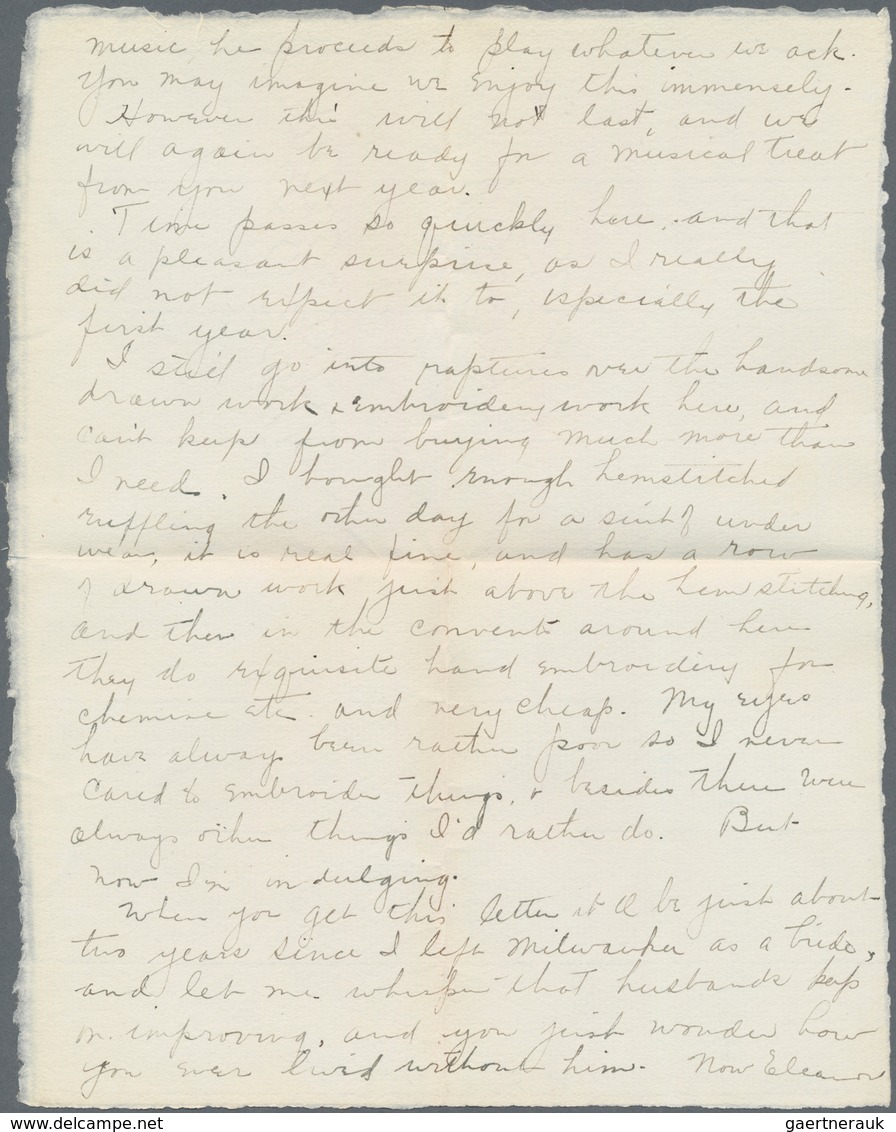 music, he proceeds to play whatever we ask.
You may imagine we enjoy this immensely.
However this will not last, and we
will again be ready for a musical treat
from you next year.
Time passes so quickly here, and that
is a pleasant surprise, as I really
did not expect it to, especially the
first year.
I still go into raptures over the handsome
drawn work & embroidery work here, and
can't keep from buying much more than
I need. I bought enough hemstitched
ruffling the other day for a suit of under
wear, it is real fine, and has a row
of drawn work just above the hemstitching,
and then in the convents around here
they do exquisite hand embroidery for
chemise etc. and very cheap. My eyes
have always been rather poor so I never
cared to embroider things, & besides there were
always other things I'd rather do. But
now I'm indulging.
When you get this letter it'll be just about
two years since I left Milwaukee as a bride,
and let me whisper that husbands keep
on improving, and you just wonder how
you ever lived without him. Now Eleanor
gaertnerauk
www.delcampe.net